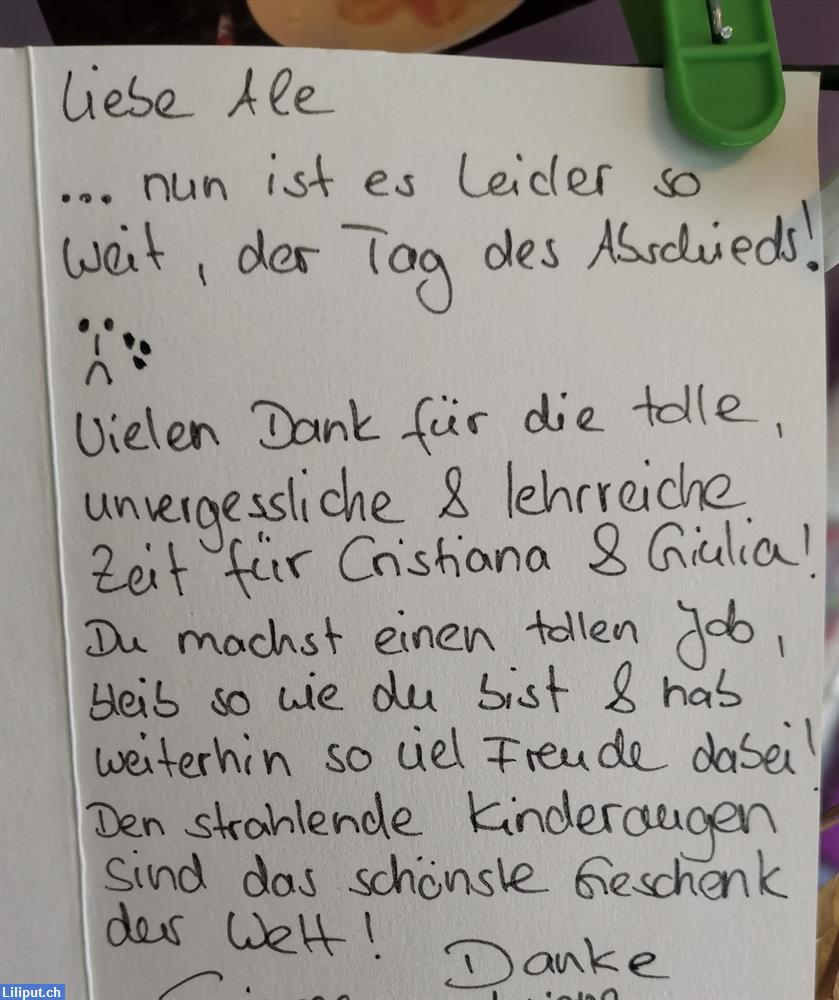 Liebe Ale
... nun ist es leider so
weit, der Tag des Abschieds!
Vielen Dank für die tolle,
unvergessliche & lehrreiche
Zeit für Cristiana & Giulia!
Du machst einen tollen Job,
bleib so wie du bist & hab
weiterhin so viel Freude dabei!
Den strahlende Kinderaugen
sind das schönste Geschenk
der Welt!
Danke
Liliput.ch